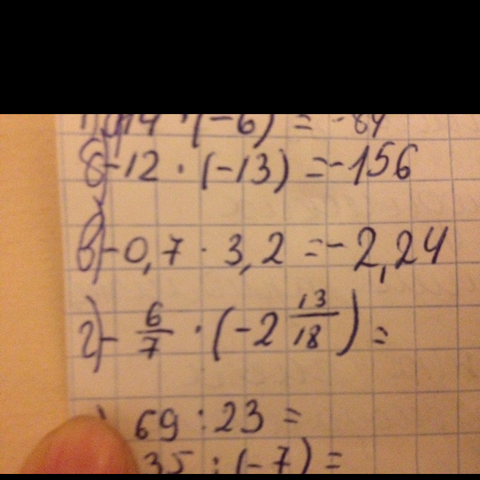 14 · (-6) = -84
б) -12 · (-13) = -156
в) -0,7 · 3,2 = -2,24
г) - 6/7 · (-2 13/18) =
69 : 23 =
35 : (-7) =